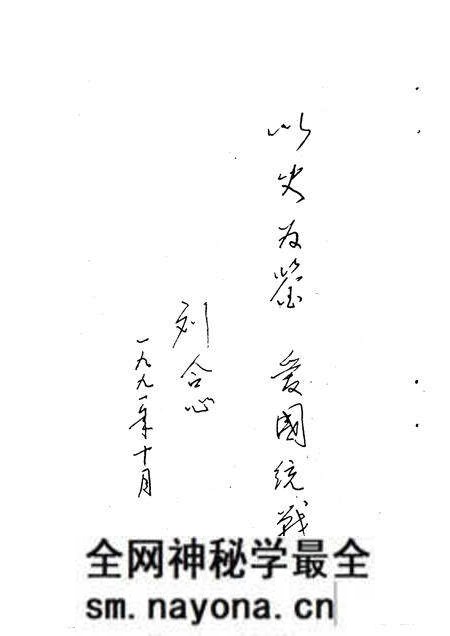 以史为鉴 爱國统战
刘合心
一九九一年十月
全网神秘学最全
sm.nayona.cn